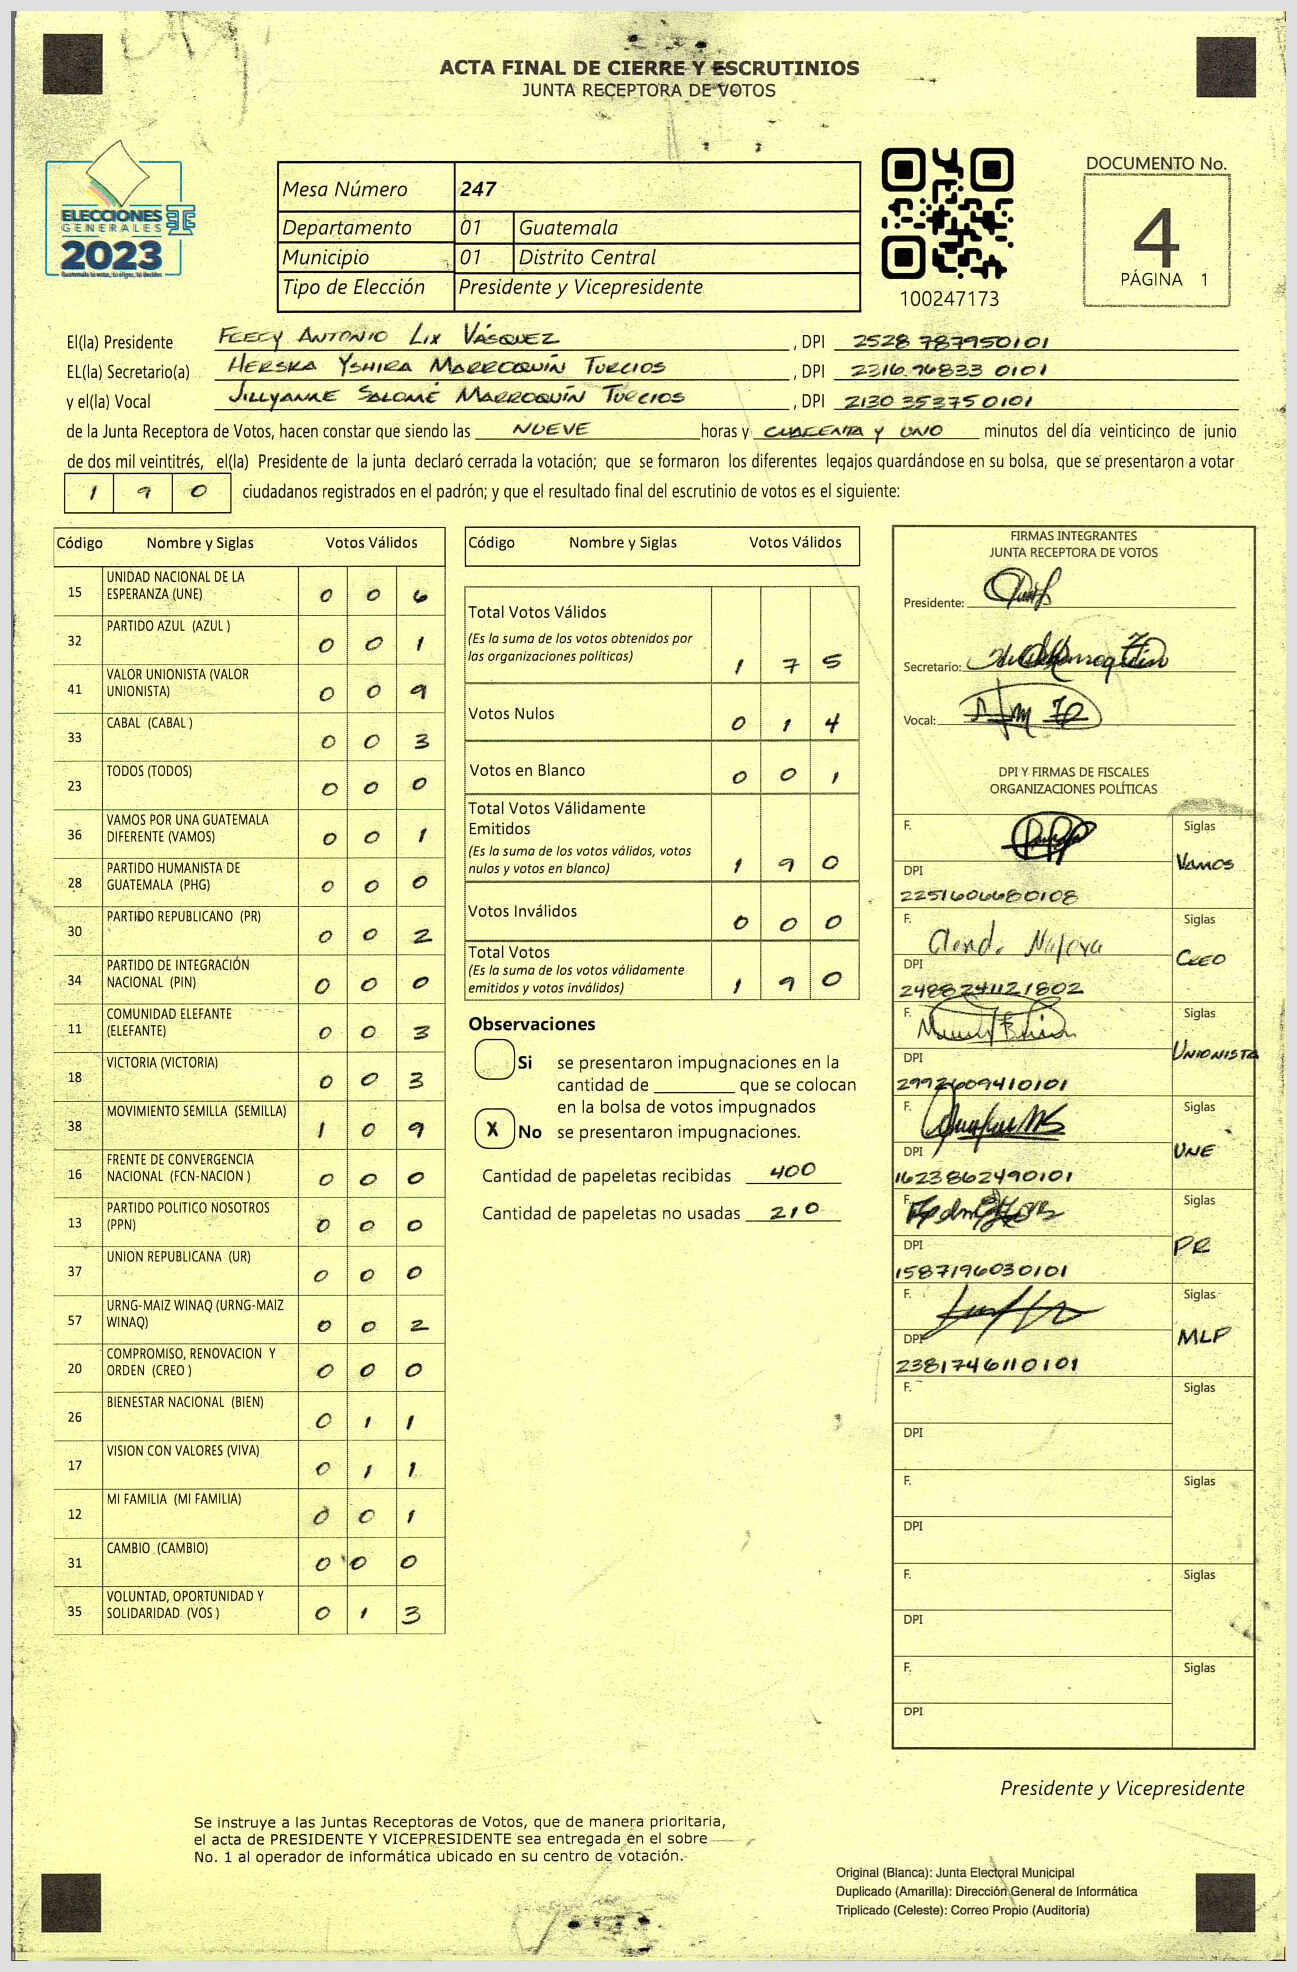 ACTA FINAL DE CIERRE Y ESCRUTINIOS
JUNTA RECEPTORA DE VOTOS
ELECCIONES
GENERALES
2023
Mesa Número 247
Departamento 01 Guatemala
Municipio 01 Distrito Central
Tipo de Elección Presidente y Vicepresidente
100247173
DOCUMENTO No.
4
PÁGINA 1
El(la) Presidente Antonio Lix Vásquez , DPI 2528 787950101
EL(la) Secretario(a) Yshira Marroquín Turcios , DPI 2316 76833 0101
y el(la) Vocal Salomé Marroquín Turcios , DPI 2130 353750101
de la Junta Receptora de Votos, hacen constar que siendo las NUEVE horas y CUARENTA Y UNO minutos del día veinticinco de junio
de dos mil veintitrés, el(la) Presidente de la junta declaró cerrada la votación; que se formaron los diferentes legajos guardándose en su bolsa, que se presentaron a votar
1 9 0 ciudadanos registrados en el padrón; y que el resultado final del escrutinio de votos es el siguiente:
Código Nombre y Siglas Votos Válidos
15 UNIDAD NACIONAL DE LA
ESPERANZA (UNE) 0 0 6
32 PARTIDO AZUL (AZUL ) 0 0 1
41 VALOR UNIONISTA (VALOR
UNIONISTA) 0 0 9
33 CABAL (CABAL ) 0 0 3
23 TODOS (TODOS) 0 0 0
36 VAMOS POR UNA GUATEMALA
DIFERENTE (VAMOS) 0 0 1
28 PARTIDO HUMANISTA DE
GUATEMALA (PHG) 0 0 0
30 PARTIDO REPUBLICANO (PR) 0 0 2
34 PARTIDO DE INTEGRACIÓN
NACIONAL (PIN) 0 0 0
11 COMUNIDAD ELEFANTE
(ELEFANTE) 0 0 3
18 VICTORIA (VICTORIA) 0 0 3
38 MOVIMIENTO SEMILLA (SEMILLA) 1 0 9
16 FRENTE DE CONVERGENCIA
NACIONAL (FCN-NACION ) 0 0 0
13 PARTIDO POLITICO NOSOTROS
(PPN) 0 0 0
37 UNION REPUBLICANA (UR) 0 0 0
57 URNG-MAIZ WINAQ (URNG-MAIZ
WINAQ) 0 0 2
20 COMPROMISO, RENOVACION Y
ORDEN (CREO ) 0 0 0
26 BIENESTAR NACIONAL (BIEN) 0 1 1
17 VISION CON VALORES (VIVA) 0 1 1
12 MI FAMILIA (MI FAMILIA) 0 0 1
31 CAMBIO (CAMBIO) 0 0 0
35 VOLUNTAD, OPORTUNIDAD Y
SOLIDARIDAD (VOS ) 0 1 3
Código Nombre y Siglas Votos Válidos
Total Votos Válidos
(Es la suma de los votos obtenidos por
las organizaciones políticas) 1 7 5
Votos Nulos 0 1 4
Votos en Blanco 0 0 1
Total Votos Válidamente
Emitidos
(Es la suma de los votos válidos, votos
nulos y votos en blanco) 1 9 0
Votos Inválidos 0 0 0
Total Votos
(Es la suma de los votos válidamente
emitidos y votos inválidos) 1 9 0
Observaciones
Si se presentaron impugnaciones en la
cantidad de ________ que se colocan
en la bolsa de votos impugnados
X No se presentaron impugnaciones.
Cantidad de papeletas recibidas 400
Cantidad de papeletas no usadas 210
FIRMAS INTEGRANTES
JUNTA RECEPTORA DE VOTOS
Presidente:
Secretario:
Vocal:
DPI Y FIRMAS DE FISCALES
ORGANIZACIONES POLÍTICAS
F. Siglas
VAMOS
DPI
2251606680108
F. Siglas
CREO
DPI
2488241121802
F. Siglas
UNIONISTA
DPI
2992609410101
F. Siglas
UNE
DPI
1623862490101
F. Siglas
PR
DPI
1587196030101
F. Siglas
MLP
DPI
2381746110101
F. Siglas
DPI
F. Siglas
DPI
F. Siglas
DPI
F. Siglas
DPI
Presidente y Vicepresidente
Se instruye a las Juntas Receptoras de Votos, que de manera prioritaria,
el acta de PRESIDENTE Y VICEPRESIDENTE sea entregada en el sobre
No. 1 al operador de informática ubicado en su centro de votación.
Original (Blanca): Junta Electoral Municipal
Duplicado (Amarilla): Dirección General de Informática
Triplicado (Celeste): Correo Propio (Auditoría)